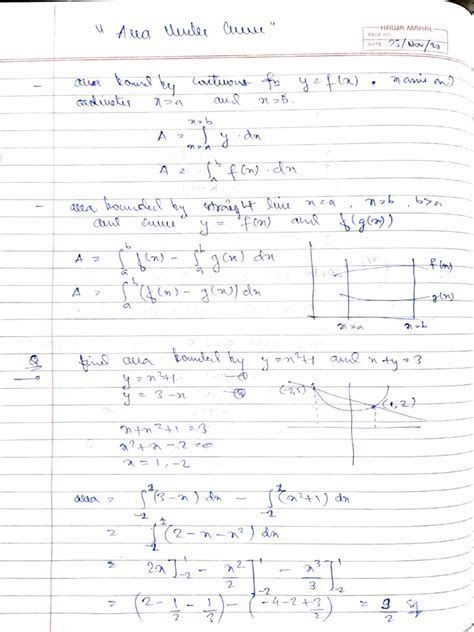 "Area Under Curve"
HAWA MAHAL
PAGE NO.
DATE: 25/Nov/20
- area bound by continuous fn y = f(x), x axis and
ordinates x=a and x=b.
A = ∫_{x=a}^{x=b} y·dx
A = ∫_a^b f(x)·dx
- area bounded by straight line x=a, x=b, b>a
and curve y = f(x) and f(g(x))
A = ∫_a^b f(x) - ∫_a^b g(x) dx
A = ∫_a^b (f(x) - g(x)) dx
f(x)
g(x)
x=a x=b
Q find area bounded by y=x²+1 and x+y=3
y = x²+1 - ①
y = 3-x - ②
(-2,5)
(1,2)
x+x²+1=3
x²+x-2=0
x = 1, -2
area = ∫_{-2}^1 (3-x) dx - ∫_{-2}^1 (x²+1) dx
= ∫_{-2}^1 (2-x-x²) dx
= 2x]_{-2}^1 - x²/2]_{-2}^1 - x³/3]_{-2}^1
= (2 - 1/2 - 1/3) - (-4-2+8/3) = 9/2 sq